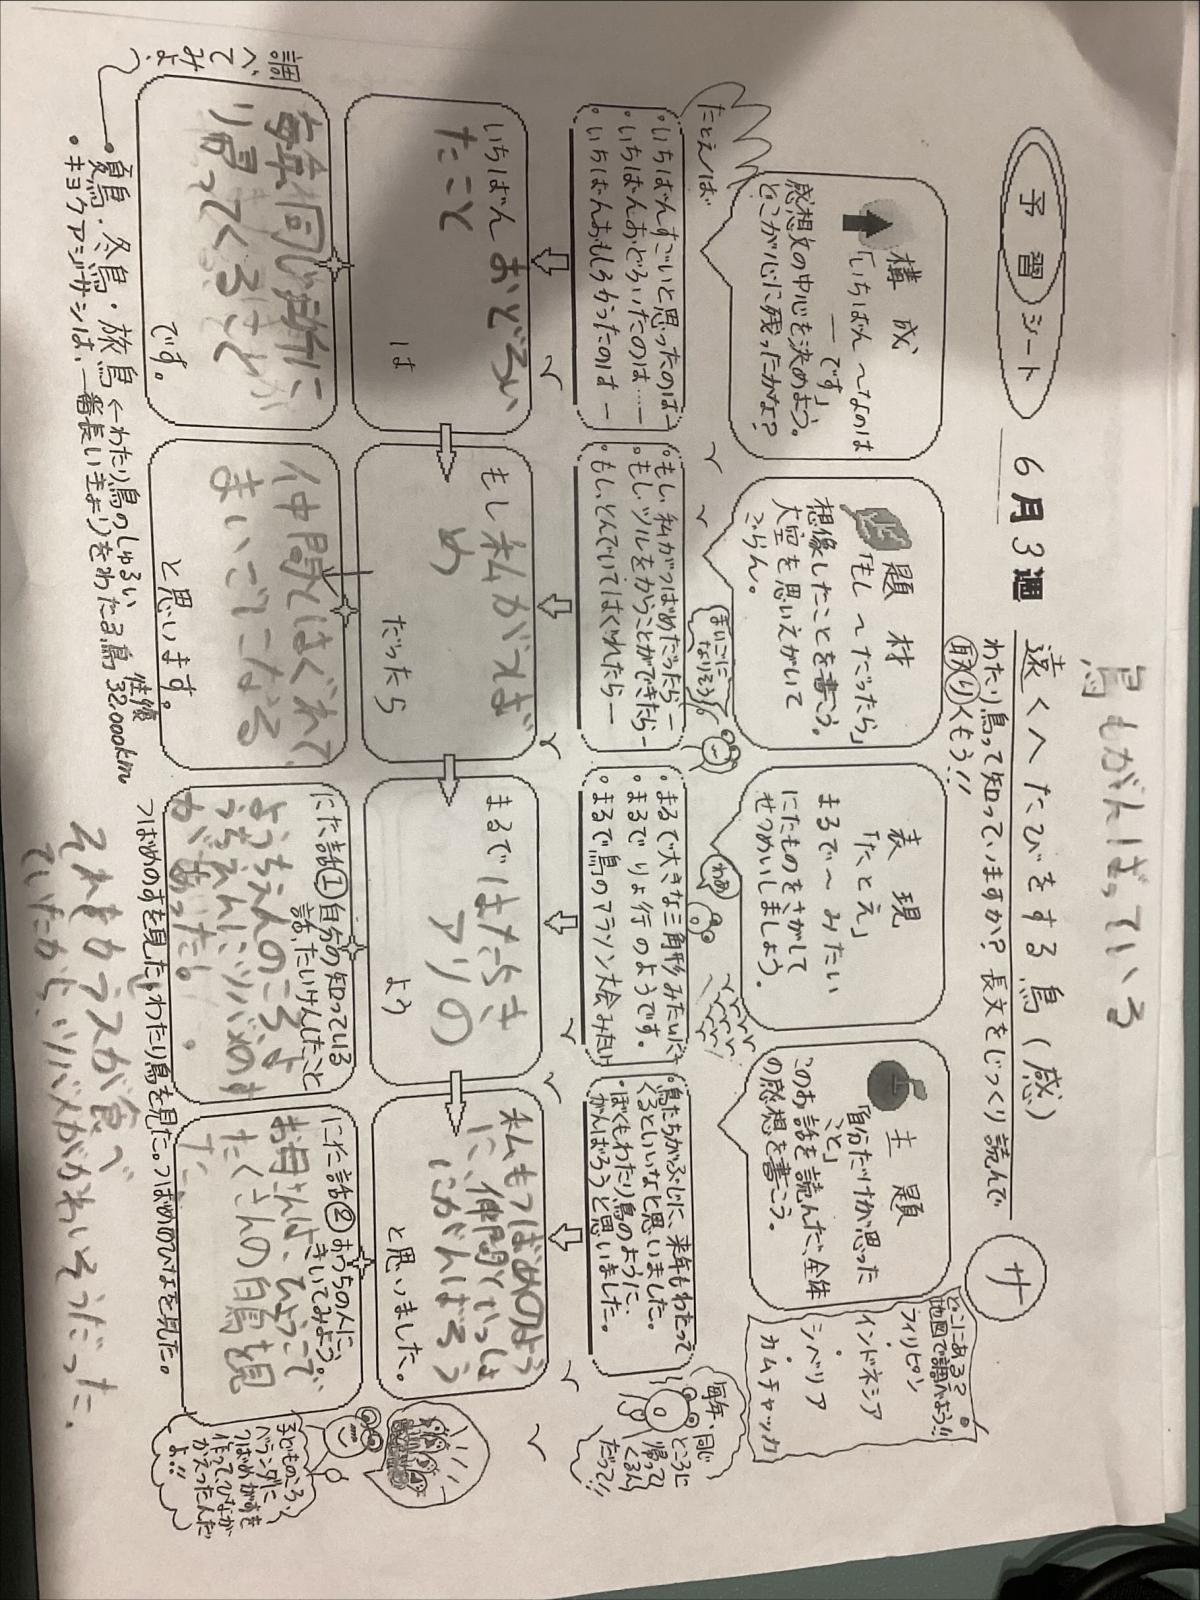 鳥もがんばっている
予習シート
6月3週
遠くへたびをする鳥(感)
サ
わたり鳥って知っていますか?長文をじっくり読んで
取りくもう!!
構成
「いちばん〜なのは
―です」
感想文の中心を決めよう。
どこが心に残ったかな?
題材
「もし〜だったら」
想像したことを書こう。
大空を思いえがいて
ごらん。
表現
「たとえ」
まるで〜みたい
にたものをさがして
せつめいしましょう。
主題
「自分だけが思った
こと」
このお話を読んだ、全体
の感想を書こう。
どこにある?
地図で調べよう!!
フィリピン
インドネシア
シベリア
カムチャッカ
たとえば
まいごに
なりそう
わあ
・いちばんすごいと思ったのは―
・いちばんおどろいたのは…―
・いちばんおもしろかったのは―
・もし、私がつばめだったら―
・もし、ツルをかうことができたら―
・もし、とんでいてはぐれたら―
・まるで大きな三角形みたいに
・まるでりょ行のようです。
・まるで鳥のマラソン大会みたい
・鳥たちがぶじに、来年もわたって
くるといいなと思いました。
・ぼくもわたり鳥のように、
がんばろうと思いました。
毎年、同じ
ところに
帰って
くるん
だって!!
いちばんおどろい
たこと
は
もし私がつば
め
だったら
まるではたらき
アリの
よう
私もつばめのよう
に、仲間といっしょ
にがんばろう
と思いました。
毎年同じ場所に
り帰ってくることが
です。
仲間とはぐれて、
まいごになる
と思います。
にた話①自分の知っている
話、たいけんしたこと
ようちえんのころ、よ
うちえんにツバメのす
があった。
にた話②おうちの人に、
きいてみよう。
お母さんは、ひょうこで
たくさんの白鳥を見
た。
子どものころ、
ベランダに
つばめがすを
作って、ひなが
かえったんだ
よ!!
調べてみよ
・夏鳥・冬鳥・旅鳥 ←わたり鳥のしゅるい
・キョクアジサシは、一番長いきょりをわたる鳥 往復32,000km。
つばめのすを見た。わたり鳥を見た。つばめのひなを見た。
それをカラスが食べ
ていたから、ツバメがかわいそうだった。